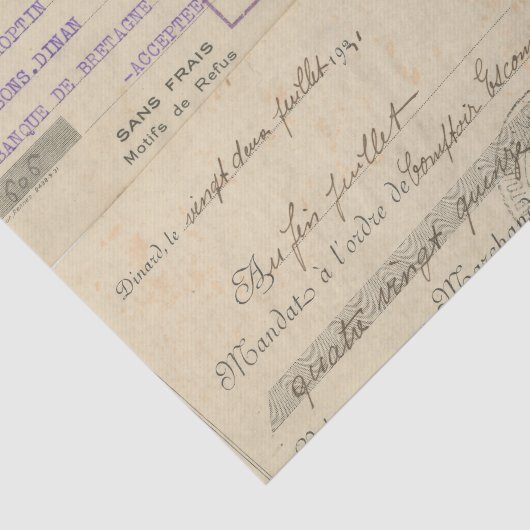 OPTIN
SONS.DINAN
BANQUE DE BRETAGNE
-ACCEPTEE
SANS FRAIS
Motifs de Refus
Dinard, le vingt deux juillet 1931
Au fin juillet
Mandat à l'ordre de Comptoir Escom
quatre vingt quinze
Marchan